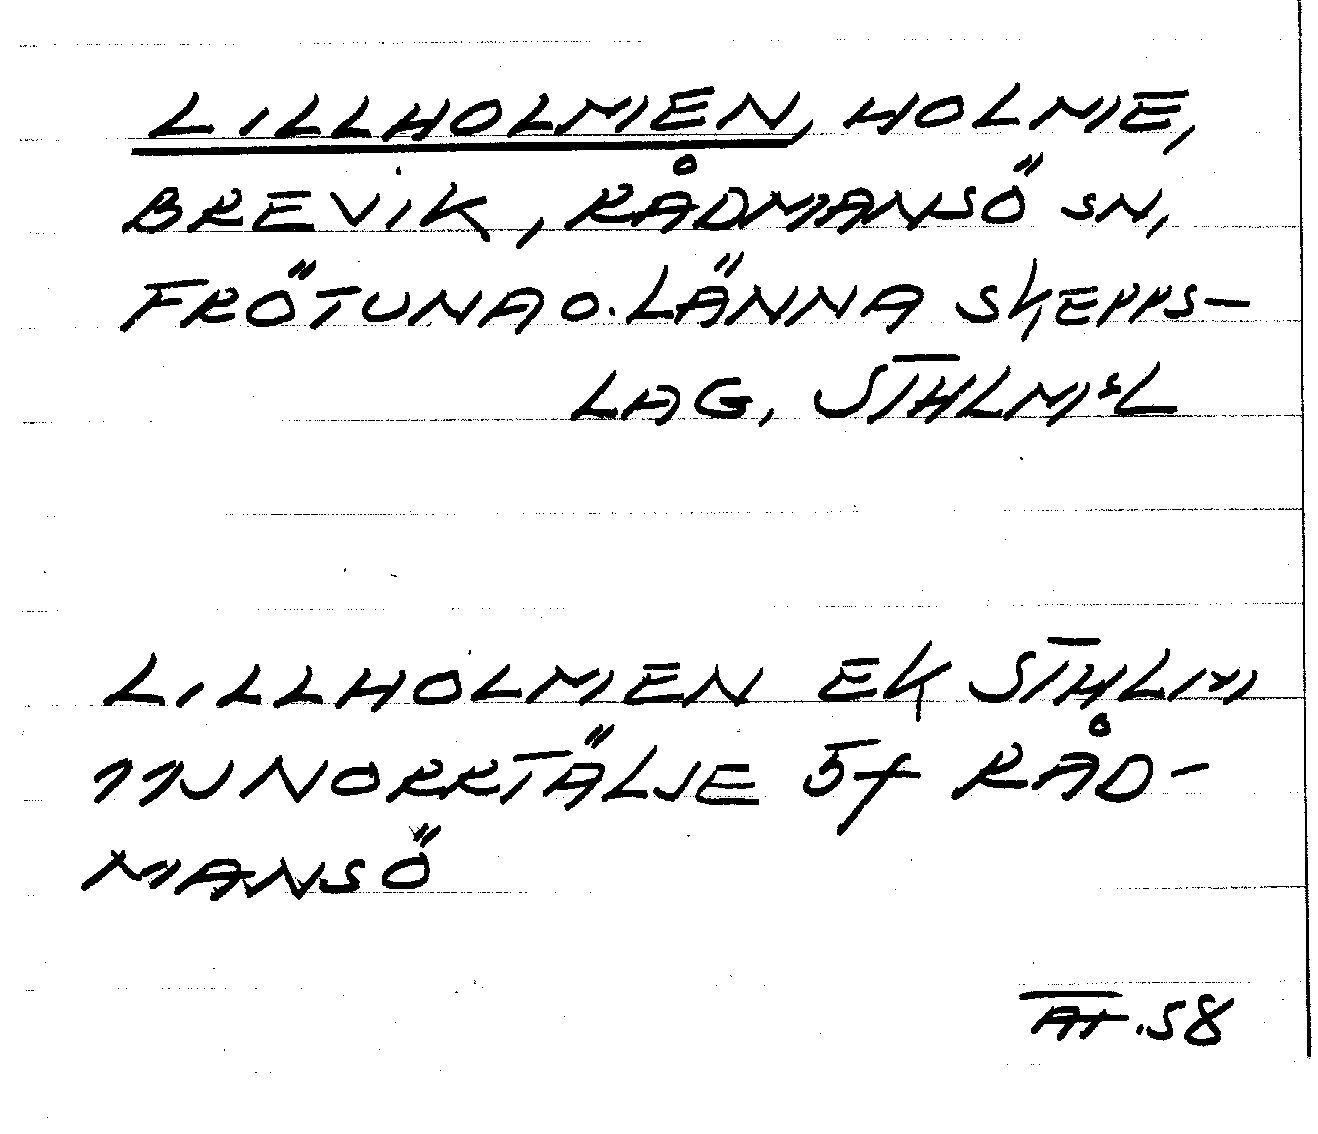 LILLHOLMEN, HOLME,
BREVIK, RÅDMANSÖ SN,
FRÖTUNA O. LÄNNA SKEPPS-
LAG, STHLMSL
LILLHOLMEN EK STHLM
11J NORRTÄLJE 5f RÅD-
MANSÖ
AT.58